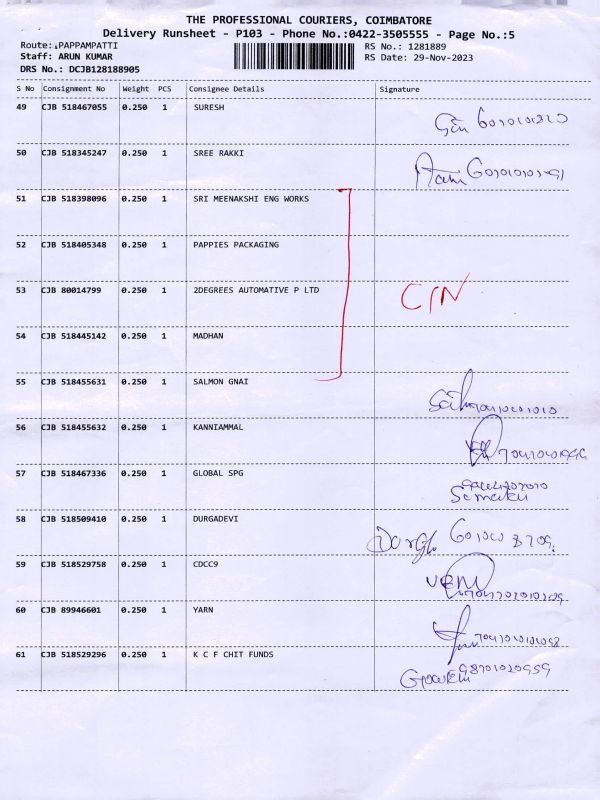 THE PROFESSIONAL COURIERS, COIMBATORE
Delivery Runsheet - P103 - Phone No.:0422-3505555 - Page No.:5
Route: PAPPAMPATTI
RS No.: 1281889
Staff: ARUN KUMAR
RS Date: 29-Nov-2023
DRS No.: DCJB128188905
S No Consignment No Weight PCS Consignee Details Signature
49 CJB 518467055 0.250 1 SURESH
50 CJB 518345247 0.250 1 SREE RAKKI
51 CJB 518398096 0.250 1 SRI MEENAKSHI ENG WORKS
52 CJB 518405348 0.250 1 PAPPIES PACKAGING
53 CJB 80014799 0.250 1 2DEGREES AUTOMATIVE P LTD
54 CJB 518445142 0.250 1 MADHAN
55 CJB 518455631 0.250 1 SALMON GNAI
56 CJB 518455632 0.250 1 KANNIAMMAL
57 CJB 518467336 0.250 1 GLOBAL SPG
58 CJB 518509410 0.250 1 DURGADEVI
59 CJB 518529758 0.250 1 CDCC9
60 CJB 89946601 0.250 1 YARN
61 CJB 518529296 0.250 1 K C F CHIT FUNDS